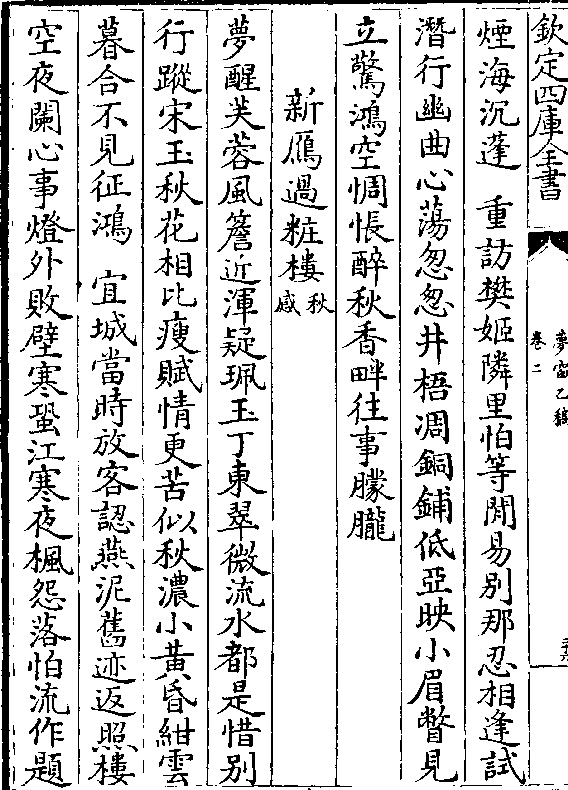 欽定四庫全書
夢窗乙稿
卷二
煙海沉蓬　重訪樊姬隣里怕等閒易別那忍相逢試
潛行幽曲心蕩怱怱井梧凋銅鋪低亞映小眉瞥見
立驚鴻空惆悵醉秋香畔往事朦朧
新鴈過粧樓秋感
夢醒芙蓉風簷近渾疑珮玉丁東翠微流水都是惜別
行蹤宋玉秋花相比瘦賦情更苦似秋濃小黄昏紺雲
暮合不見征鴻　宜城當時放客認燕泥舊迹返照樓
空夜闌心事燈外敗壁寒蛩江寒夜楓怨落怕流作題